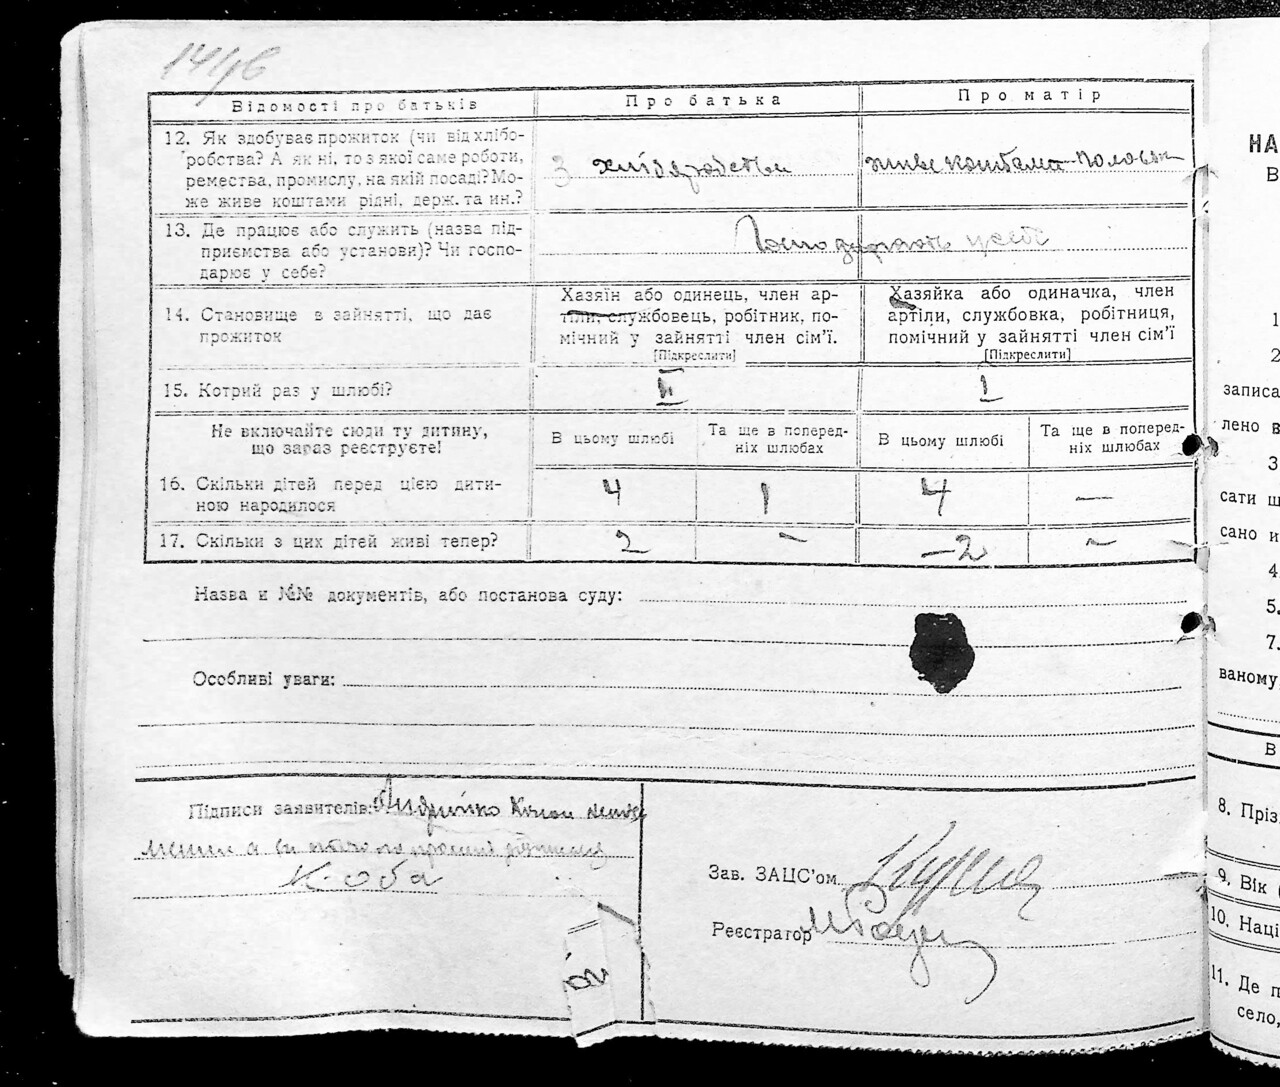 144б
Відомості про батьків
Про батька
Про матір
12. Як здобуває прожиток (чи від хлібо-
робства? А як ні, то з якої саме роботи,
ремества, промислу, на якій посаді? Мо-
же живе коштами рідні, держ. та ин.?
З хліборобства
живе коштами
13. Де працює або служить (назва під-
приємства або установи)? Чи госпо-
дарює у себе?
14. Становище в зайнятті, що дає
прожиток
Хазяїн або одинець, член ар-
тіли, службовець, робітник, по-
мічний у зайнятті член сім’ї.
[Підкреслити]
Хазяйка або одиначка, член
артіли, службовка, робітниця,
помічний у зайнятті член сім’ї
[Підкреслити]
15. Котрий раз у шлюбі?
II
1
Не включайте сюди ту дитину,
що зараз реєструєте!
В цьому шлюбі
Та ще в поперед-
ніх шлюбах
В цьому шлюбі
Та ще в поперед-
ніх шлюбах
16. Скільки дітей перед цією дити-
ною народилося
4
1
4
—
17. Скільки з цих дітей живі тепер?
2
–
–2
–
Назва и №№ документів, або постанова суду:
Особливі уваги:
Підписи заявителів:
Коба
Зав. ЗАЦС’ом
Реєстратор
НА
В
1
2
записа
лено в
3
сати ш
сано и
4
5.
7.
ваному,
В
8. Пріз
9. Вік (
10. Наці
11. Де п
село,